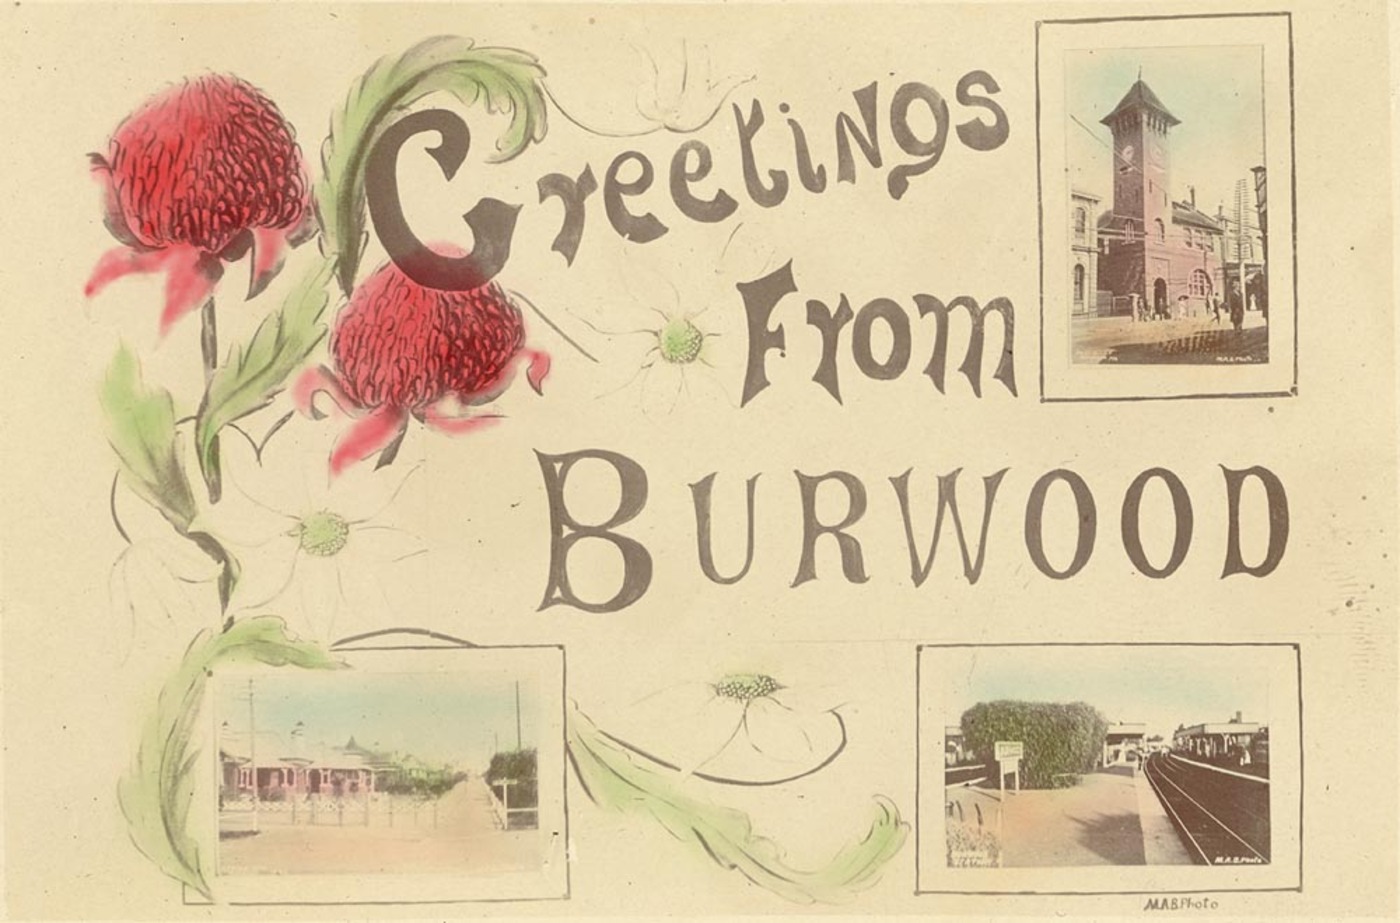 Greetings
From
BURWOOD
M.A.B. Photo
M.A.B. Photo